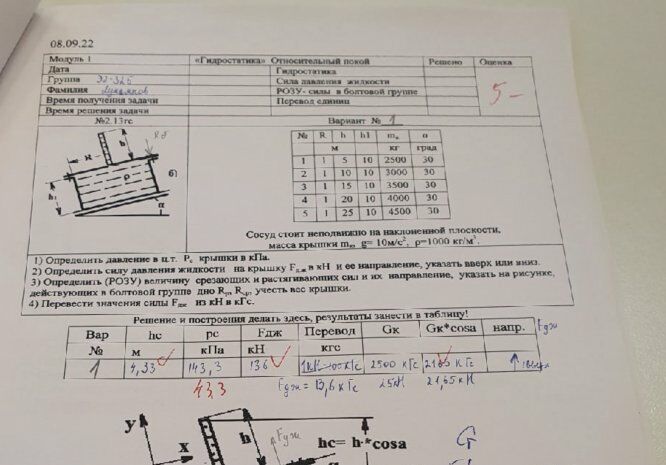 08.09.22
Модуль 1 «Гидростатика» Относительный покой Решено Оценка
Дата Гидростатика
Группа Э2-32Б Сила давления жидкости 5-
Фамилия РОЗУ- силы в болтовой группе
Время получения задачи Перевод единиц
Время решения задачи
№2.13гс Вариант № 1
№ R h h1 mк α
м кг град
1 1 5 10 2500 30
2 1 10 10 3000 30
3 1 15 10 3500 30
4 1 20 10 4000 30
5 1 25 10 4500 30
h
R
ρ
б)
h1
α
Сосуд стоит неподвижно на наклоненной плоскости,
масса крышки mк, g= 10м/с², ρ=1000 кг/м³.
1) Определить давление в ц.т. Pc крышки в кПа.
2) Определить силу давления жидкости на крышку Fдж в кН и ее направление, указать вверх или вниз.
3) Определить (РОЗУ) величину срезающих и растягивающих сил и их направления, указать на рисунке,
действующих в болтовой группе дно учесть вес крышки.
4) Перевести значения силы Fдж из кН в кГс.
Решение и построения делать здесь, результаты занести в таблицу!
Вар hc pc Fдж Перевод Gк Gк*cosa напр. Fдж
№ м кПа кН кгс
1 4,33 143,3 136 2500 кГс 2165 кГс ↑ вверх
43,3 Fдж = 13,6 кГс 25кН 21,65 кН
y
x
h
Fдж
hc= h*cosa
G